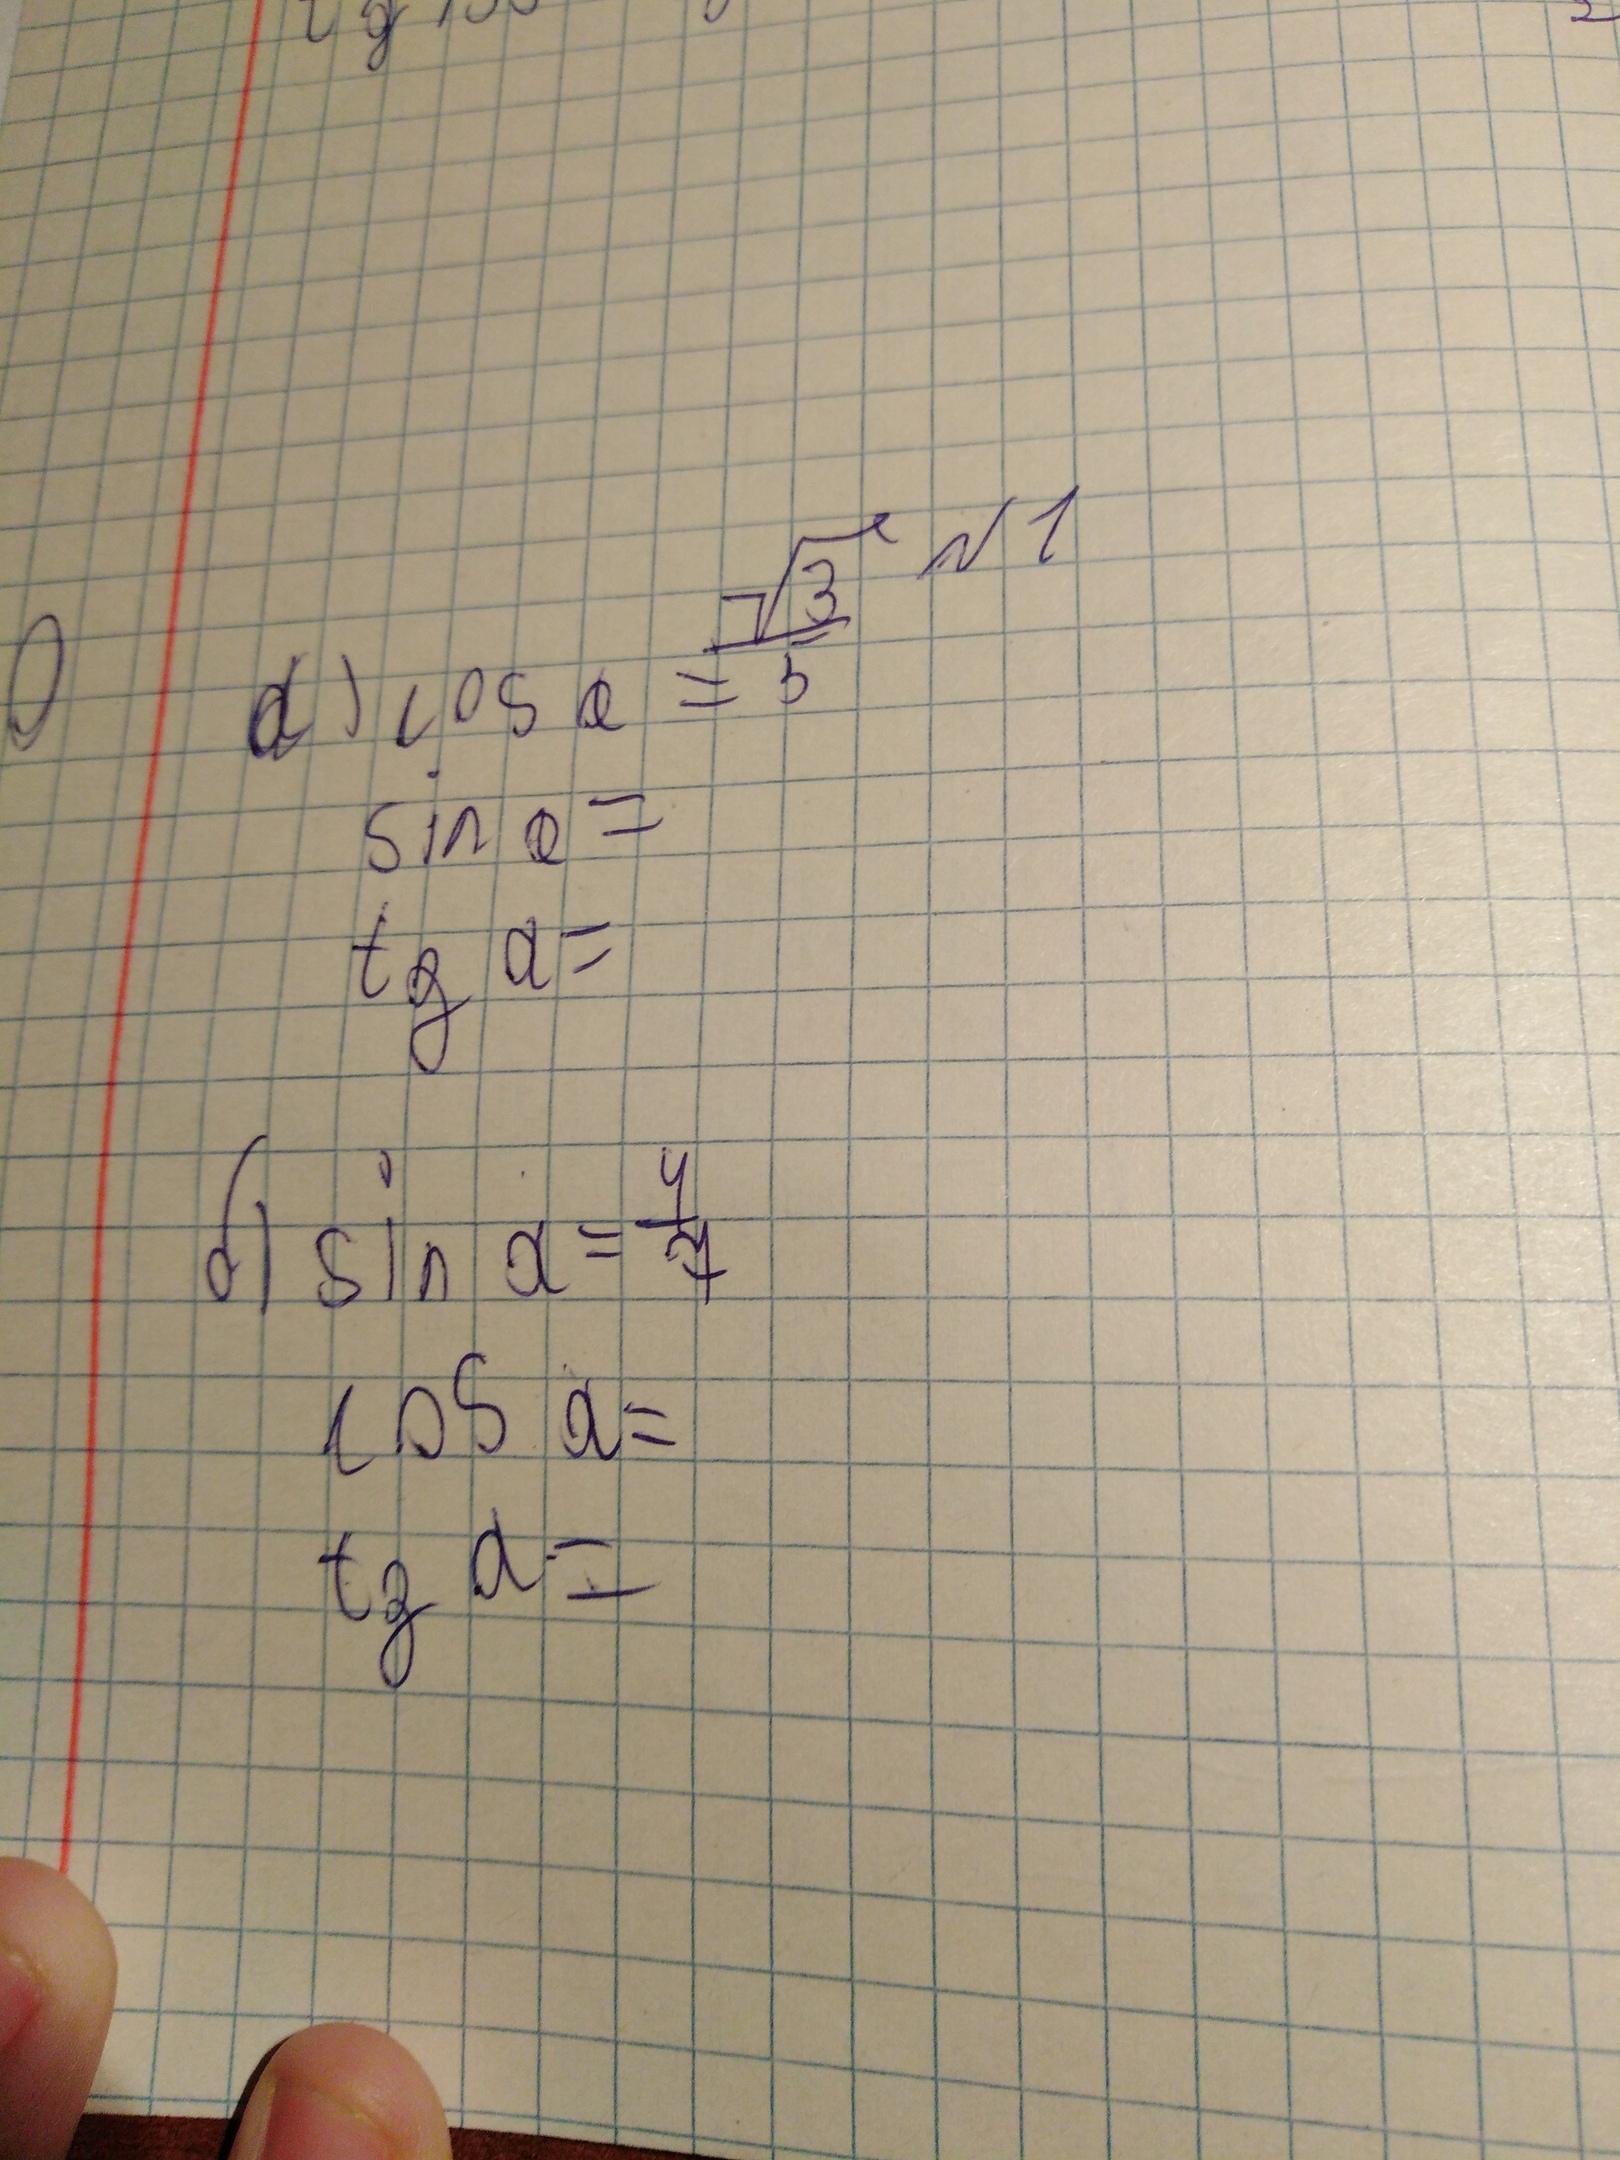 №1
а) cos a = √3/5
sin a =
tg a =
б) sin a = 4/7
cos a =
tg a =